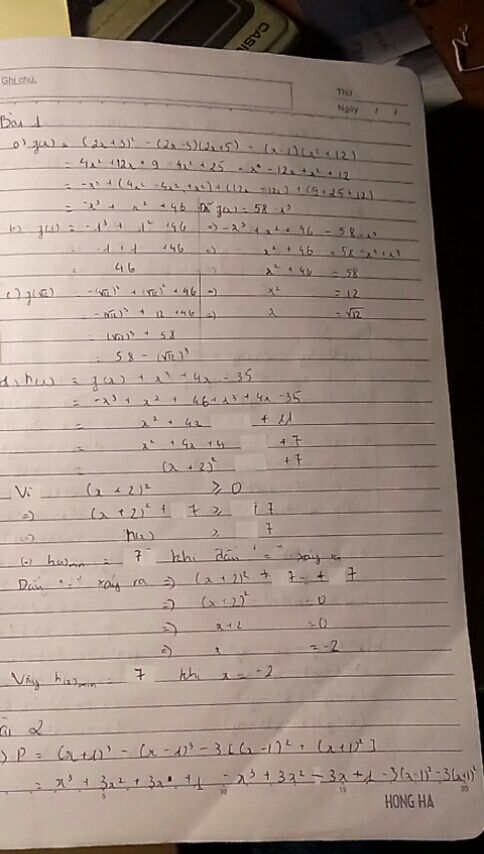 CASIO
Ghi chú:
Thứ
Ngày / /
Bài 1
a) g(x) = (2x+3)² - (2x-5)(2x+5) - (x-1)(x²+12)
= 4x² + 12x + 9 - 4x² + 25 - x³ - 12x + x² + 12
= -x³ + (4x² - 4x² + x²) + (12x - 12x) + (9+25+12)
= -x³ + x² + 46 Để g(x) = 58 - x³
b) g(1) = -1³ + 1² + 46 => -x³ + x² + 46 = 58 - x³
= -1 + 1 + 46 => x² + 46 = 58 - x³ + x³
= 46 x² + 46 = 58
c) g(√12) = -(√12)³ + (√12)² + 46 => x² = 12
= -(√12)³ + 12 + 46 => x = √12
= -(√12)³ + 58
= 58 - (√12)³
d) h(x) = g(x) + x³ + 4x - 35
= -x³ + x² + 46 + x³ + 4x - 35
= x² + 4x + 11
= x² + 4x + 4 + 7
= (x + 2)² + 7
Vì (x + 2)² ≥ 0
=> (x + 2)² + 7 ≥ 7
=> h(x) ≥ 7
=> h(x)min = 7 khi dấu "=" xảy ra
Dấu "=" xảy ra => (x+2)² + 7 = 7
=> (x+2)² = 0
=> x+2 = 0
=> x = -2
Vậy h(x)min = 7 khi x = -2
ài 2
) P = (x+1)³ - (x-1)³ - 3[(x-1)² + (x+1)²]
= x³ + 3x² + 3x + 1 - x³ + 3x² - 3x + 1 - 3(x-1)² - 3(x+1)²
5 10 15 20
HONG HA